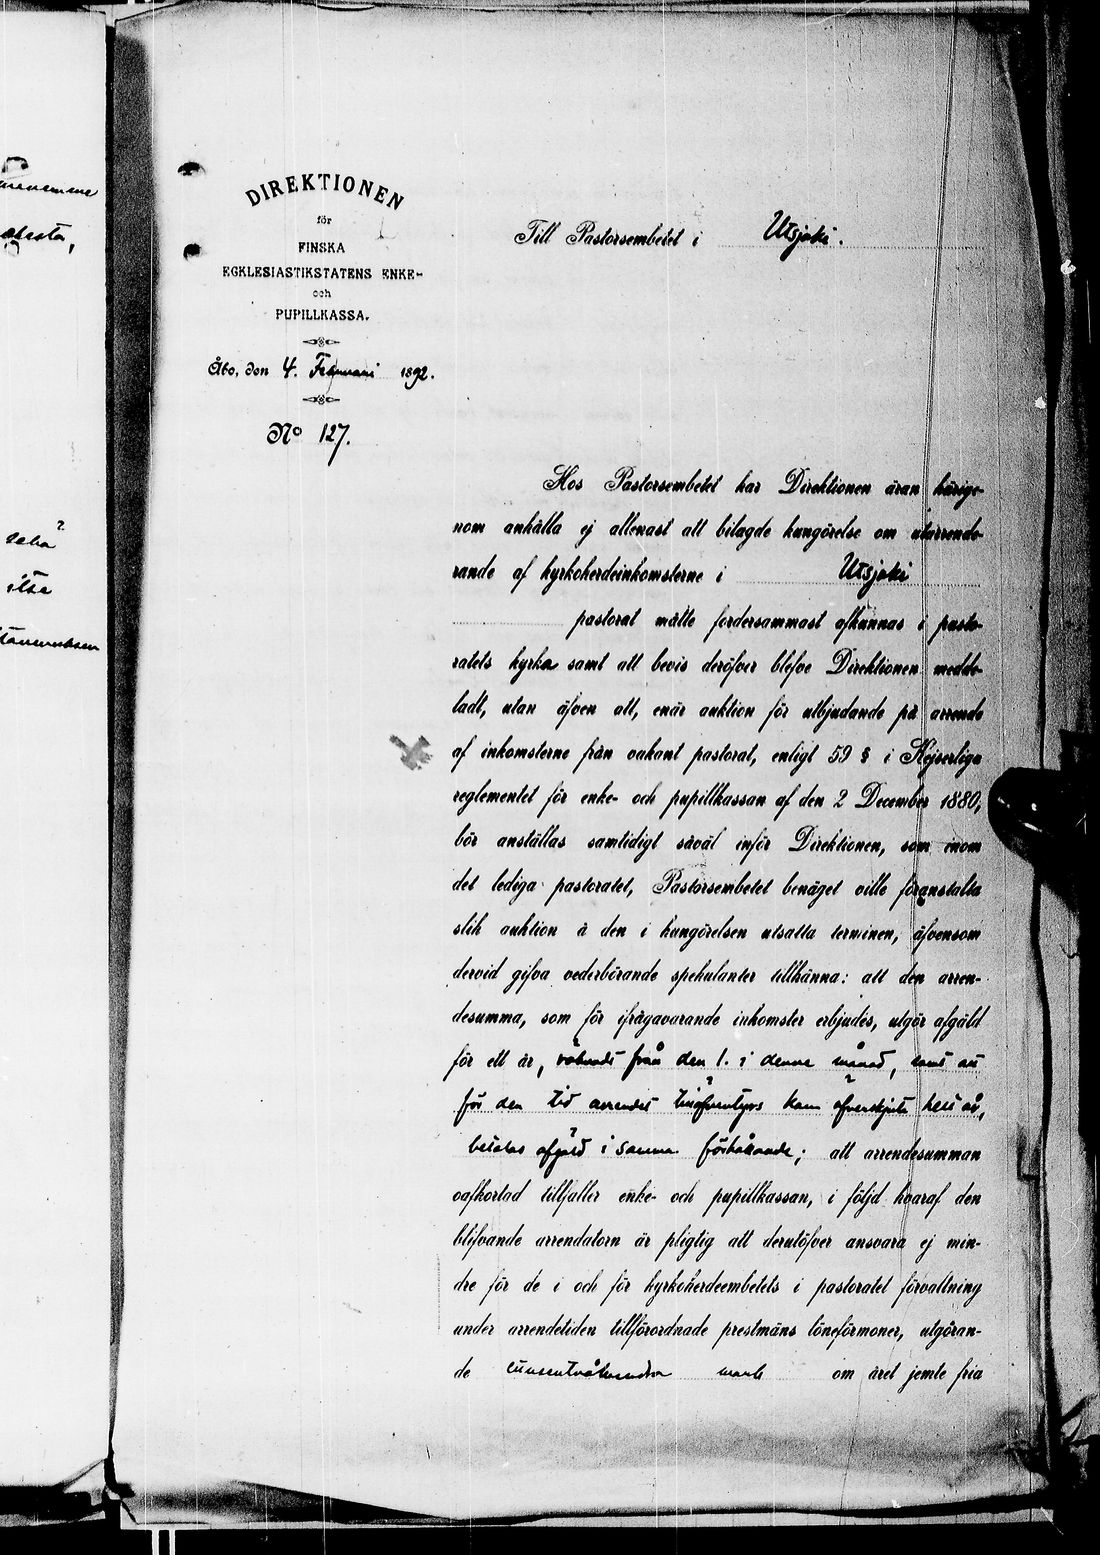 DIREKTIONEN
för
FINSKA
ECKLESIASTIKSTATENS ENKE-
och
PUPILLKASSA.
Åbo, den 4. Februari 1892.
No 127.
Till Pastorsembetet i Utsjoki.
Hos Pastorsembetet har Direktionen äran härige-
nom anhålla ej allenast att bilagde kungörelse om utarrende-
rande af kyrkoherdeinkomsterne i Utsjoki
pastorat måtte fordersammast afkunnas i pasto-
ratets kyrka samt att bevis deröfver blefve Direktionen medde-
ladt, utan äfven att, enär auktion för utbjudande på arrende
af inkomsterne från vakant pastorat, enligt 59 § i Kejserliga
reglementet för enke- och pupillkassan af den 2 December 1880,
bör anställas samtidigt såväl inför Direktionen, som inom
det lediga pastoratet, Pastorsembetet benäget ville föranstalta
slik auktion å den i kungörelsen utsatta terminen, äfvensom
dervid gifva vederbörande spekulanter tillkänna: att den arren-
desumma, som för ifrågavarande inkomster erbjudes, utgör afgäld
för ett år, räknadt från den 1. i denne månad, samt att
för den tid arrendet kan öfverskjuta helt år,
betalas afgäld i samma förhållande; att arrendesumman
oafkortad tillfaller enke- och pupillkassan, i följd hvaraf den
blifvande arrendatorn är pligtig att derutöfver ansvara ej min-
dre för de i och för kyrkoherdeembetets i pastoratet förvaltning
under arrendetiden tillförordnade prestmäns löneförmoner, utgöran-
de mark om året jemte fria